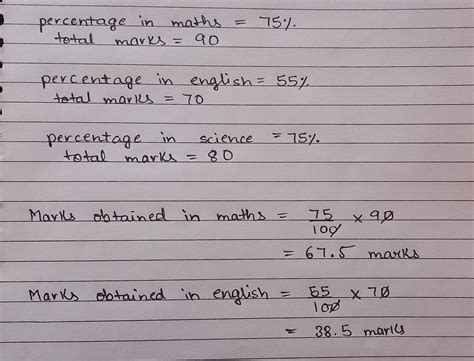 percentage in maths = 75%.
total marks = 90
percentage in english = 55%.
total marks = 70
percentage in science = 75%.
total marks = 80
Marks obtained in maths = 75/100 x 90
= 67.5 marks
Marks obtained in english = 55/100 x 70
= 38.5 marks